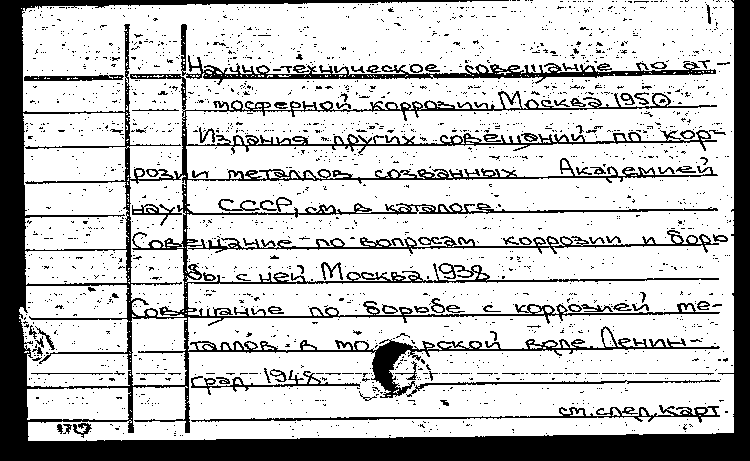 Научно-техническое совещание по ат-
мосферной коррозии. Москва. 1950.
Издания других совещаний по кор-
розии металлов, созванных Академией
наук СССР, см. в каталоге:
Совещание по вопросам коррозии и борь-
бы с ней. Москва. 1938.
Совещание по борьбе с коррозией ме-
таллов в воде. Ленин-
град. 1948.
см. след. карт.